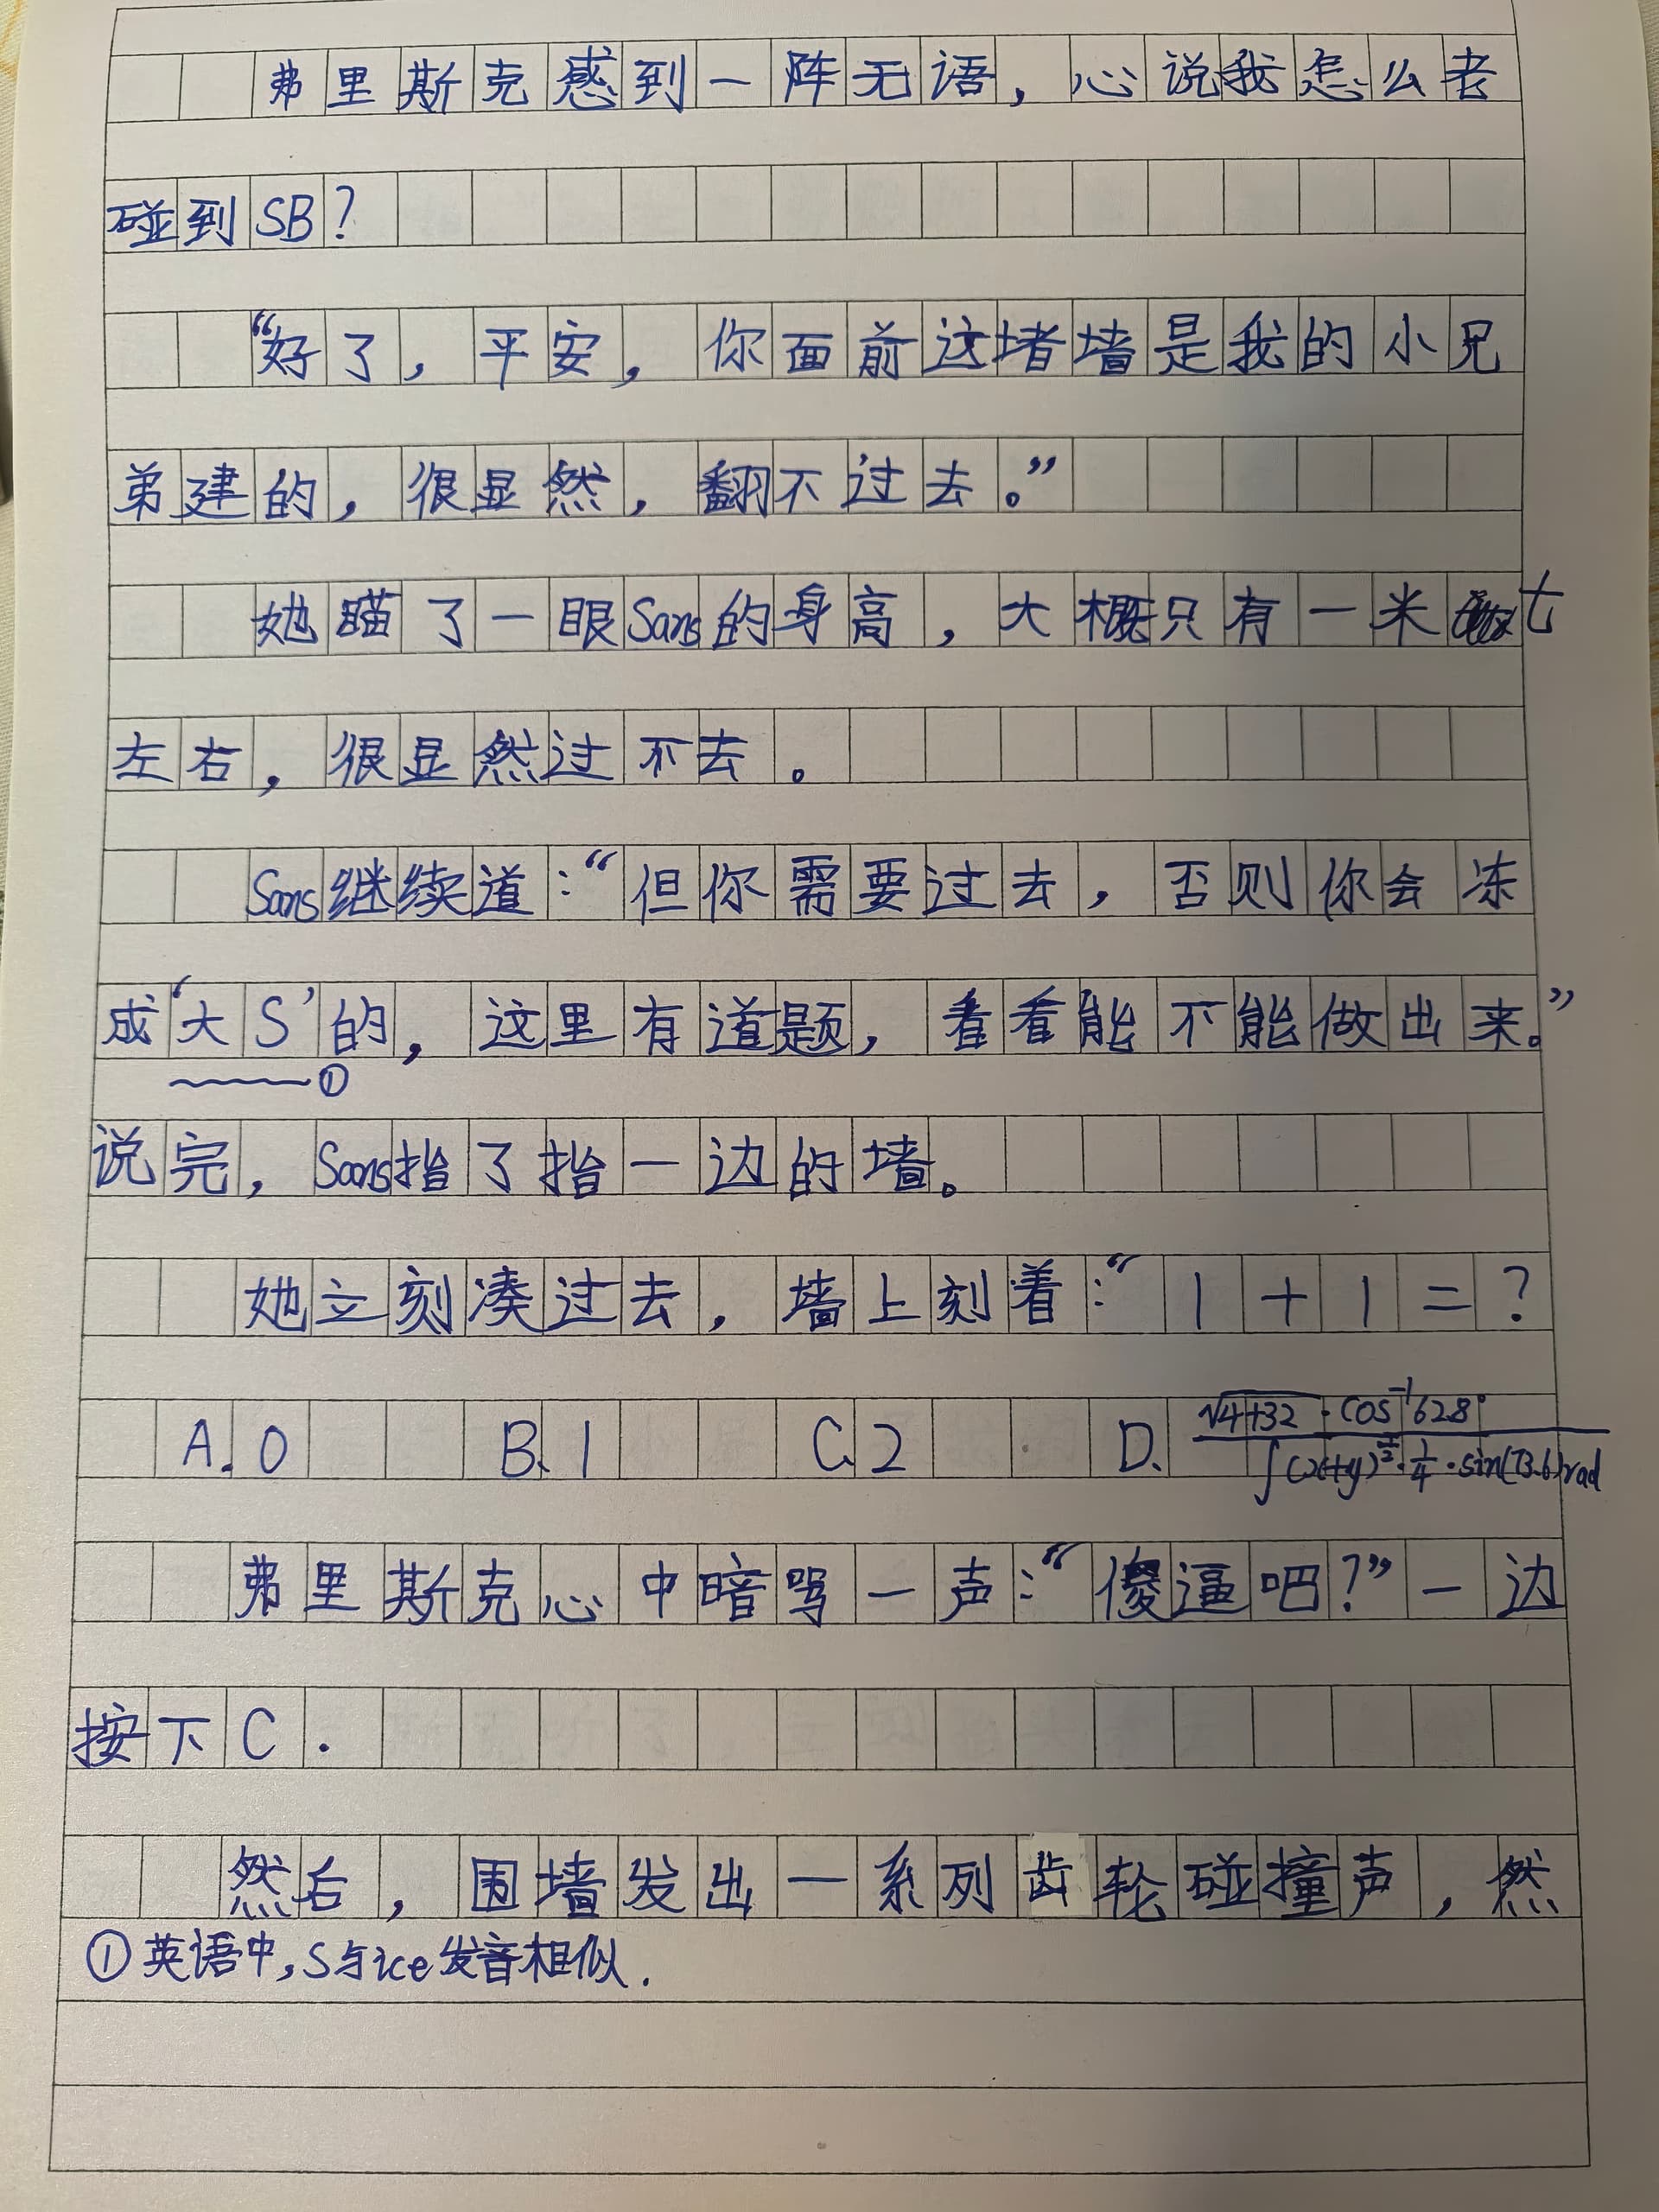 弗里斯克感到一阵无语，心说我怎么老
碰到SB？
“好了，平安，你面前这堵墙是我的小兄
弟建的，很显然，翻不过去。”
她瞄了一眼Sans的身高，大概只有一米七
左右，很显然过不去。
Sans继续道：“但你需要过去，否则你会冻
成‘大S’的，这里有道题，看看能不能做出来。”
①
说完，Sans指了指一边的墙。
她立刻凑过去，墙上刻着：“1+1=？
A.0 B.1 C.2 D. √4+32·cos⁻¹628°
∫(x+y)^½·¼·sin(73.6)rad
弗里斯克心中暗骂一声：“傻逼吧？”一边
按下C.
然后，围墙发出一系列齿轮碰撞声，然
①英语中,S与ice发音相似.